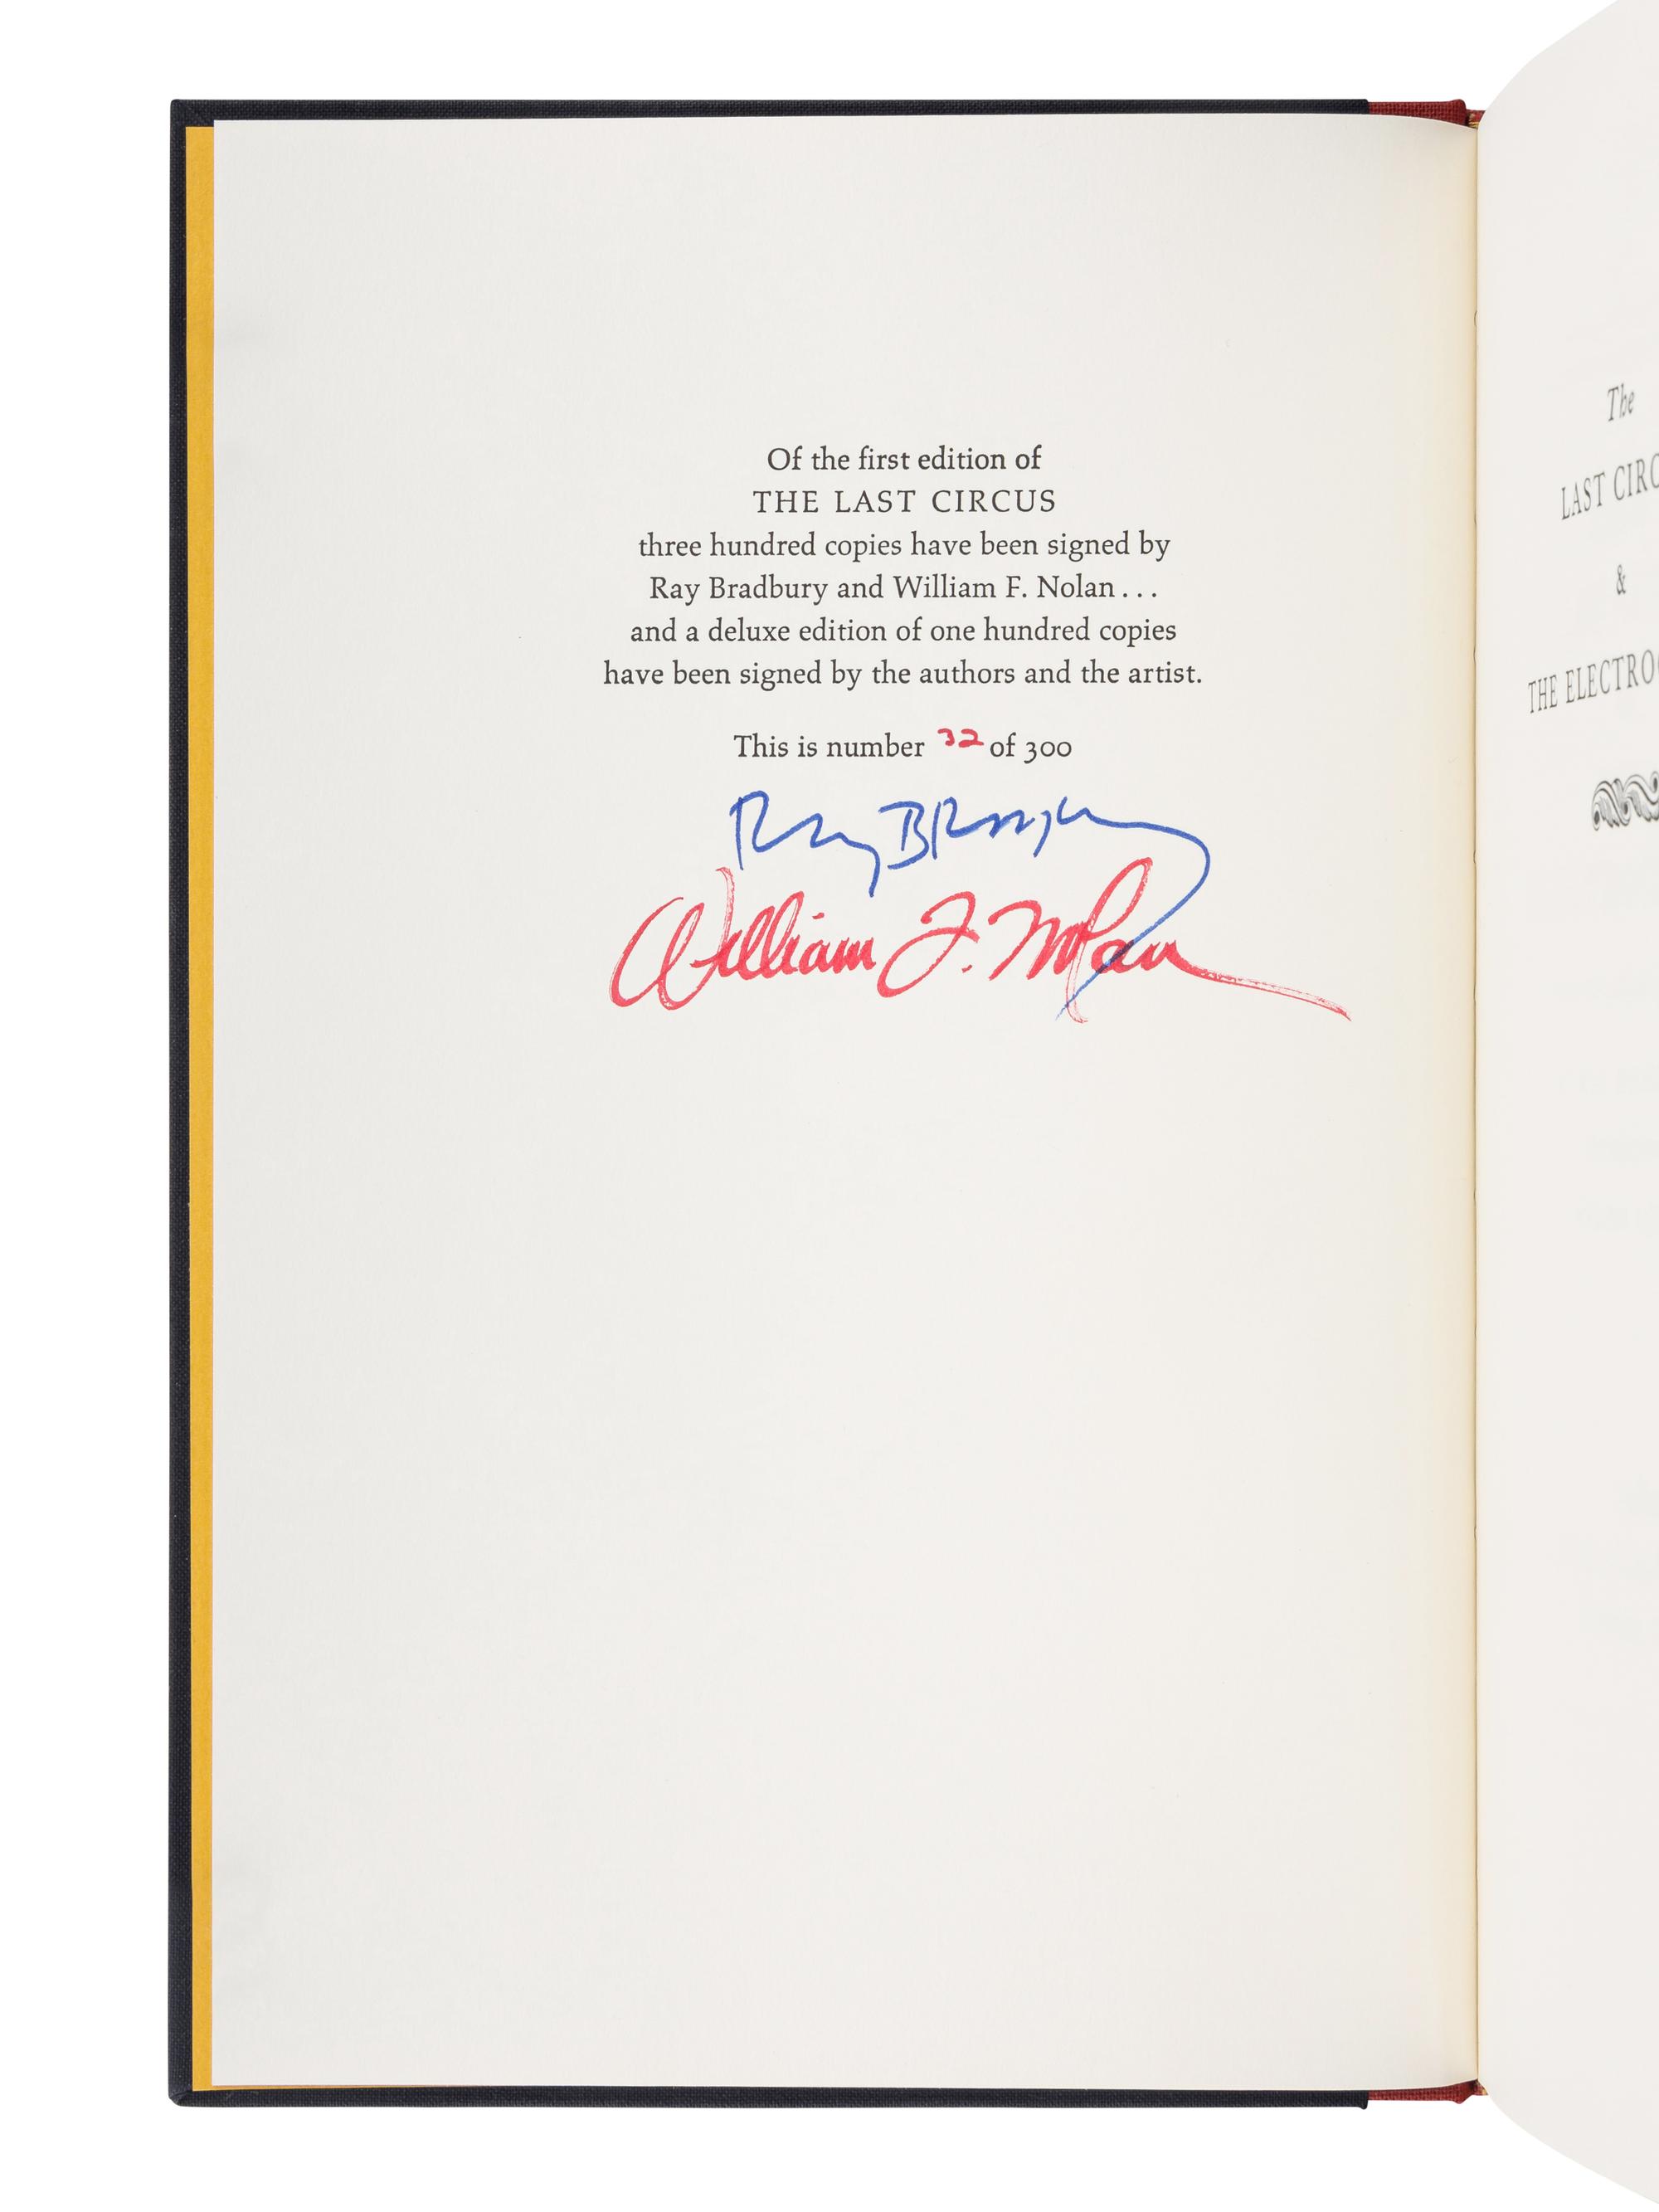 Of the first edition of
THE LAST CIRCUS
three hundred copies have been signed by
Ray Bradbury and William F. Nolan . . .
and a deluxe edition of one hundred copies
have been signed by the authors and the artist.
This is number 32 of 300
Ray Bradbury
William F. Nolan
The
LAST CIRC
&
THE ELECTRO